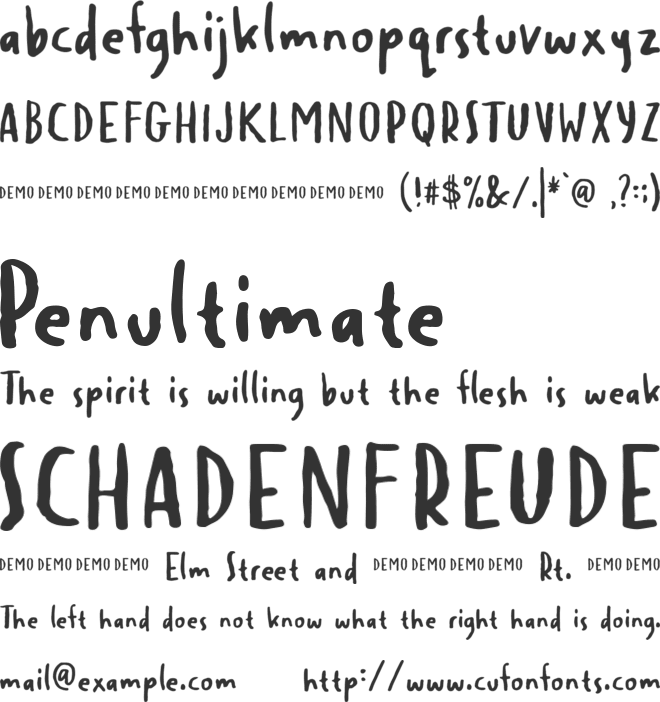 abcdefghijklmnopqrstuvwxyz
ABCDEFGHIJKLMNOPQRSTUVWXYZ
DEMO DEMO DEMO DEMO DEMO DEMO DEMO DEMO DEMO DEMO (!#$%&/.|*`@ ,?:;)
Penultimate
The spirit is willing but the flesh is weak
SCHADENFREUDE
DEMO DEMO DEMO DEMO Elm Street and DEMO DEMO DEMO DEMO Rt. DEMO DEMO
The left hand does not know what the right hand is doing.
mail@example.com http://www.cufonfonts.com